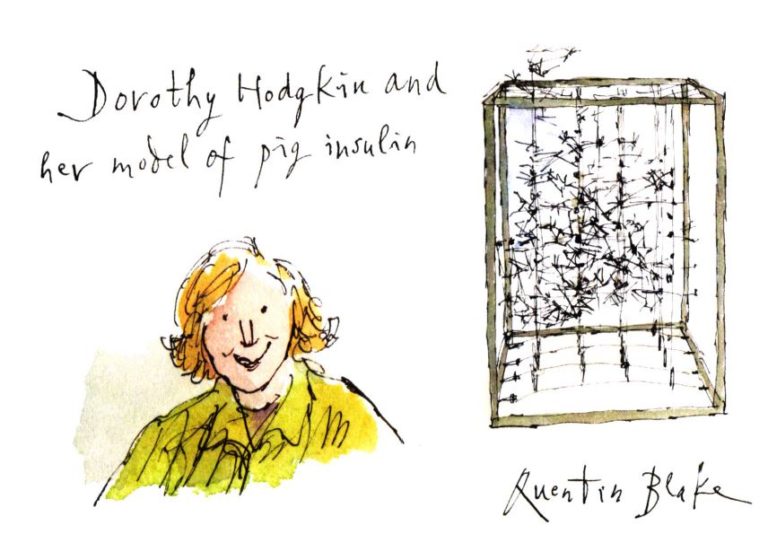 Dorothy Hodgkin and
her model of pig insulin
Quentin Blake